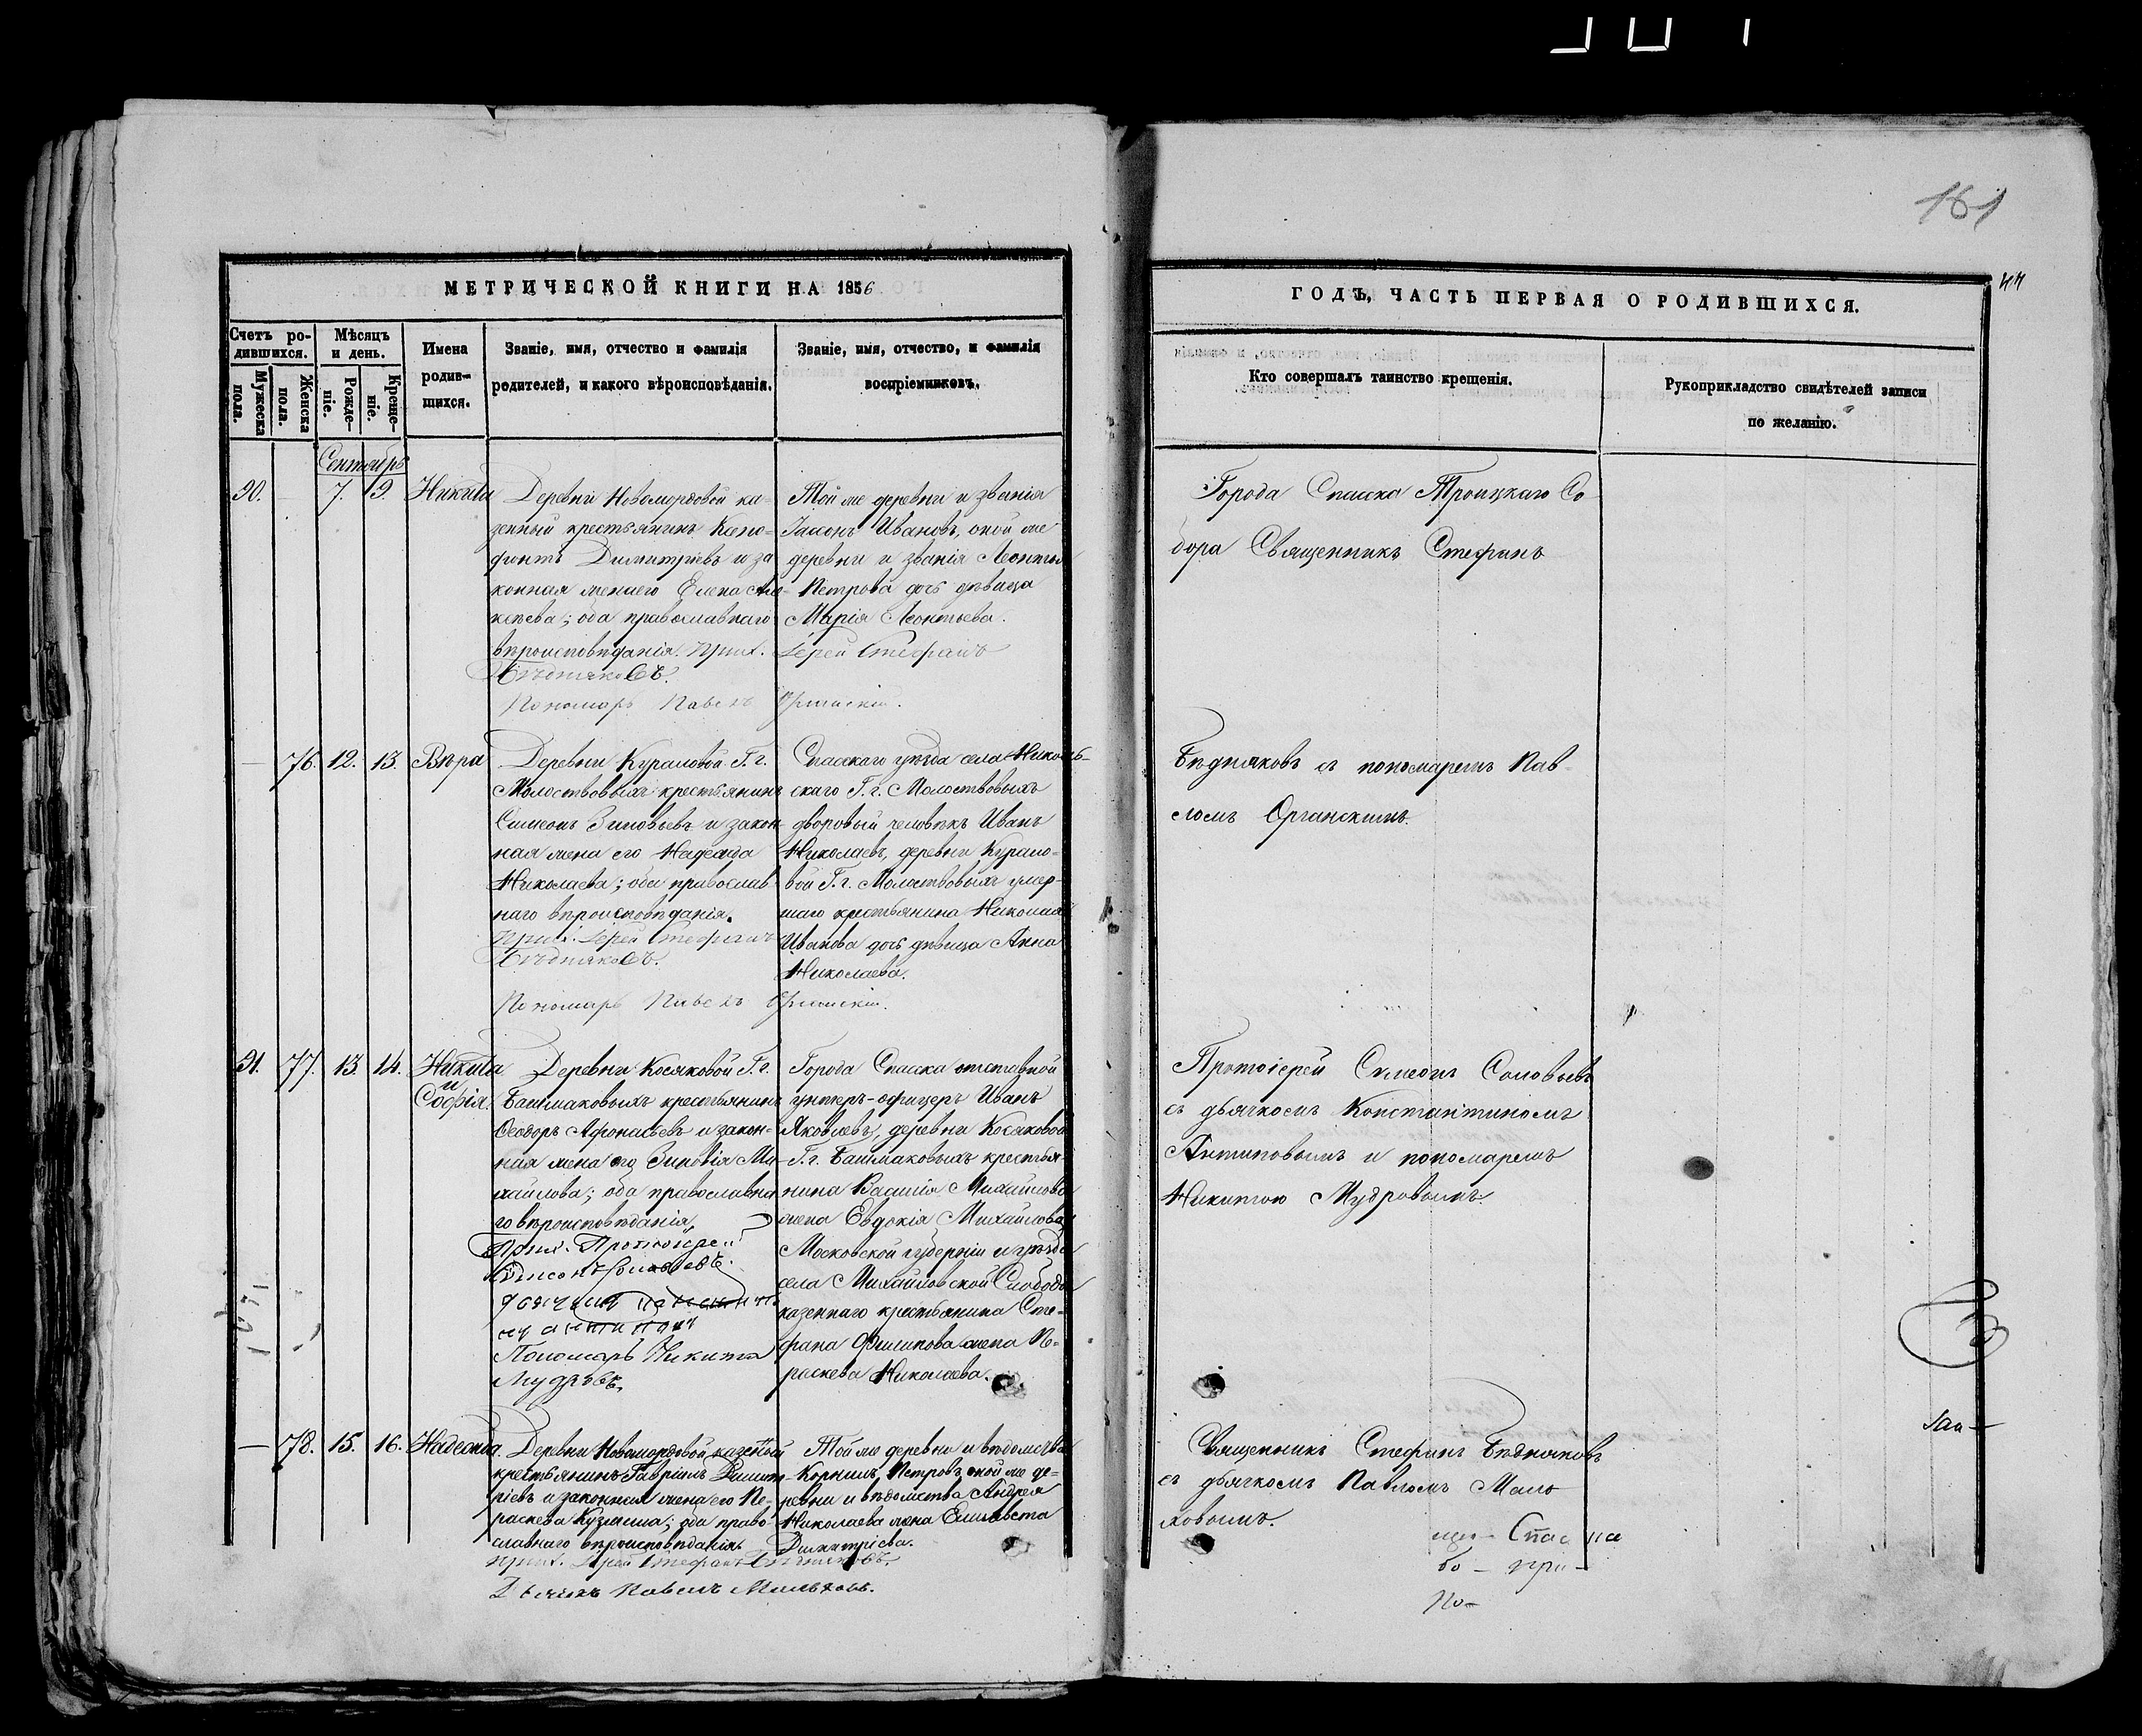 161
МЕТРИЧЕСКОЙ КНИГИ НА 1856
ГОДЪ, ЧАСТЬ ПЕРВАЯ О РОДИВШИХСЯ.
44
Счетъ ро-
дившихся.
Мужеска
пола.
Женска
пола.
Мѣсяцъ
и день.
Рожде-
ніе.
Креще-
ніе.
Имена
родив-
шихся.
Званіе, имя, отчество и фамилія
родителей, и какого вѣроисповѣданія.
Званіе, имя, отчество, и фамилія
воспріемниковъ.
Кто совершалъ таинство крещенія.
Рукоприкладство свидѣтелей записи
по желанію.
Сентябрь
90.
7. 9.
Никита
Деревни Новомордовой ка-
зенный крестьянинъ Ксено-
фонтъ Димитріевъ и за
конная жена его Елена Але-
ксѣева; оба православнаго
вѣроисповѣданія. Прих. Іерей Стефанъ
Бѣдняковъ.
Пономарь Павелъ Органскій.
Той же деревни и званія
Іасонъ Ивановъ, оной же
деревни и званія Леонтья
Петрова дочь дѣвица
Марія Леонтьева.
Города Спасска Троицкаго Со
бора Священникъ Стефанъ
— 76. 12. 13.
Вѣра
Деревни Кураловой Г. г.
Молоствовыхъ крестьянинъ
Симеонъ Зиновьевъ и закон-
ная жена его Надежда
Николаева; оба православ
наго вѣроисповѣданія.
Прих. Іерей Стефанъ
Бѣдняковъ.
Пономарь Павелъ Органскій.
Спасскаго уѣзда села Николь-
скаго Г. г. Молоствовыхъ
дворовый человѣкъ Иванъ
Николаевъ, деревни Курало-
вой Г. г. Молоствовыхъ умер-
шаго крестьянина Николая
Иванова дочь дѣвица Анна
Николаева.
Бѣдняковъ съ пономаремъ Пав-
ломъ Органскимъ.
91. 77. 13. 14.
Никита
и
Софія.
Деревни Косяковой Г. г.
Башмаковыхъ крестьянинъ
Ѳеодоръ Афонасьевъ и закон-
ная жена его Зиновія Ми-
хайлова; оба православна
го вѣроисповѣданія.
Прих. Протоіерей
Симеонъ Соловьевъ.
Пономарь Никита
Мудровъ.
Города Спасска отставной
унтеръ-офицеръ Иванъ
Яковлевъ, деревни Косяковой
Г. г. Башмаковыхъ крестья-
нина Василія Михайлова
жена Евдокія Михайлова,
Московской губерніи и уѣзда
села Михайловской Слободы
казеннаго крестьянина Сте-
фана Филипова жена Па-
раскева Николаева.
Протоіерей Симеонъ Соловьевъ
съ дьячкомъ Константиномъ
Антиповымъ и пономаремъ
Никитою Мудровымъ.
— 78. 15. 16.
Надежда.
Деревни Новомордовой казенный
крестьянинъ Гавріилъ Димит-
ріевъ и законная жена его Па-
раскева Кузмина; оба право-
славнаго вѣроисповѣданія.
Прих. Іерей Стефанъ Бѣдняковъ.
Дьячекъ Павелъ Мальховъ.
Той же деревни и вѣдомства
Корнилъ Петровъ, оной же де-
ревни и вѣдомства Андрея
Николаева жена Елисавета
Димитріева.
Священникъ Стефанъ Бѣдняковъ
съ дьячкомъ Павломъ Маль
ховымъ.
бо - при -
По-